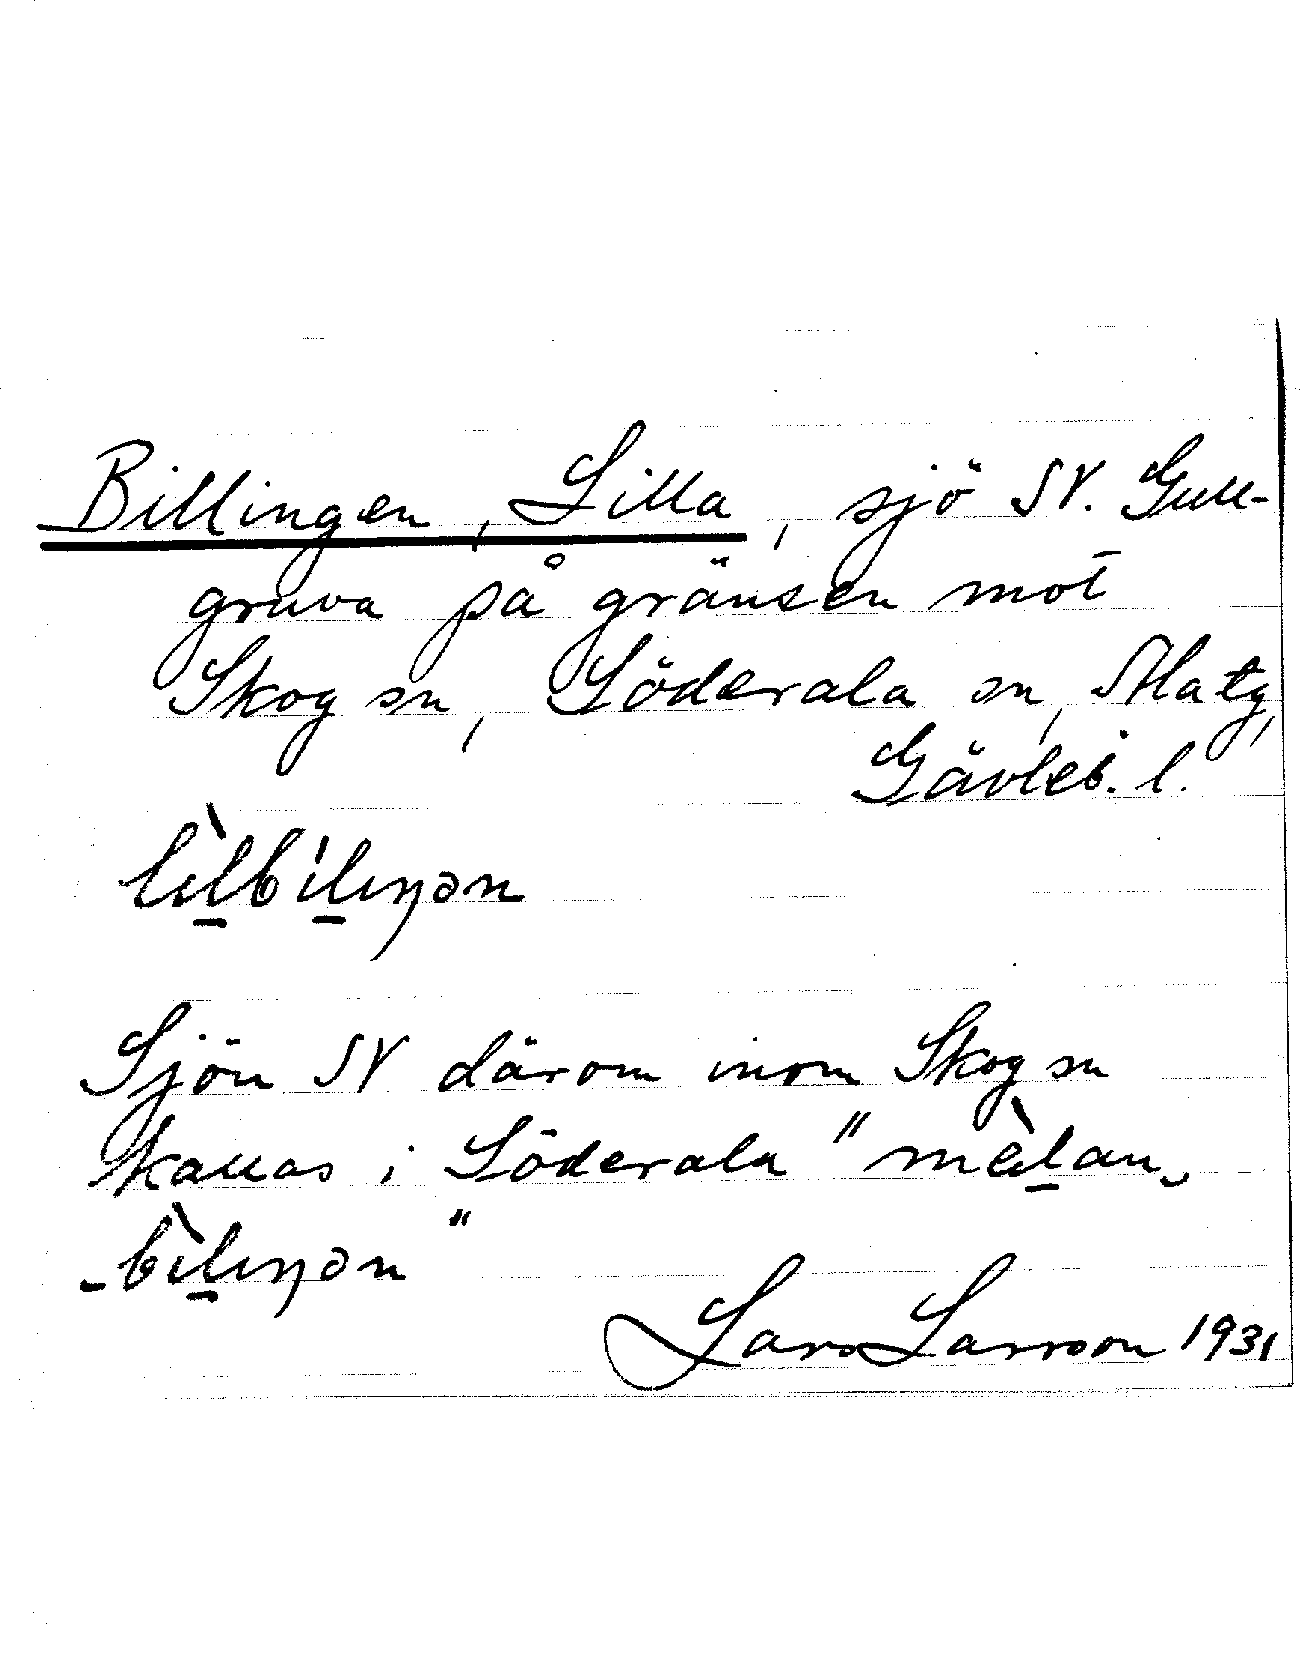 Billingen, Lilla, sjö NV. Gull-
gruva på gränsen mot
Skog sn, Söderala sn, Ala tg,
Gävleb. l.
lɩ̀lbílɩŋən
Sjön NV därom inom Skog sn
kallas i Söderala "mèlan
-bìlɩŋən"
Lars Larsson 1931